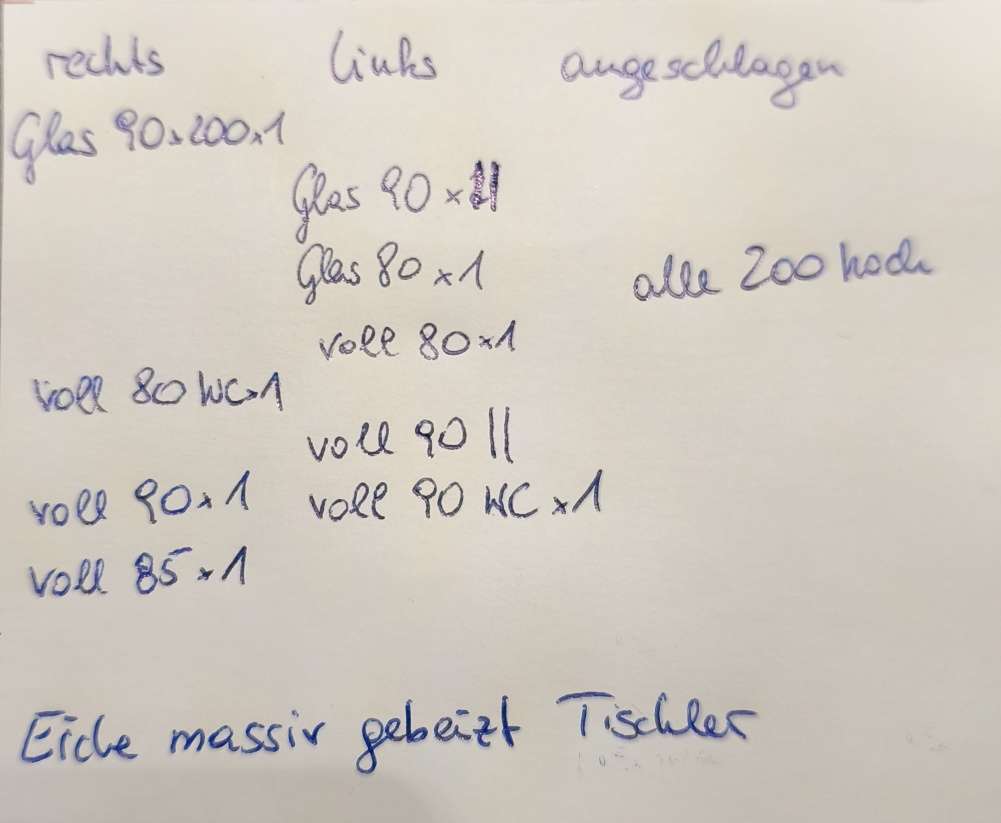 rechts links angeschlagen
Glas 90x200x1
Glas 90 x II
Glas 80 x 1
alle 200 hoch
voll 80x1
voll 80 WCx1
voll 90 II
voll 90x1 voll 90 WC x1
voll 85x1
Eiche massiv gebeizt Tischler